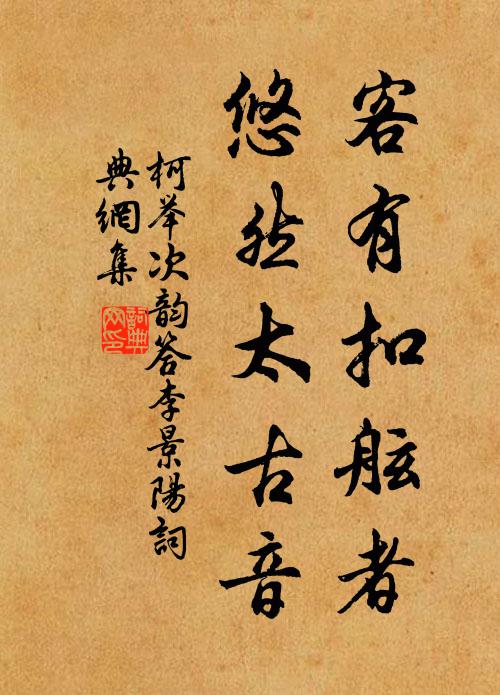 客有扣舷者
悠然太古音
柯举次韵答李景陽詞
典網集
詞典
网印